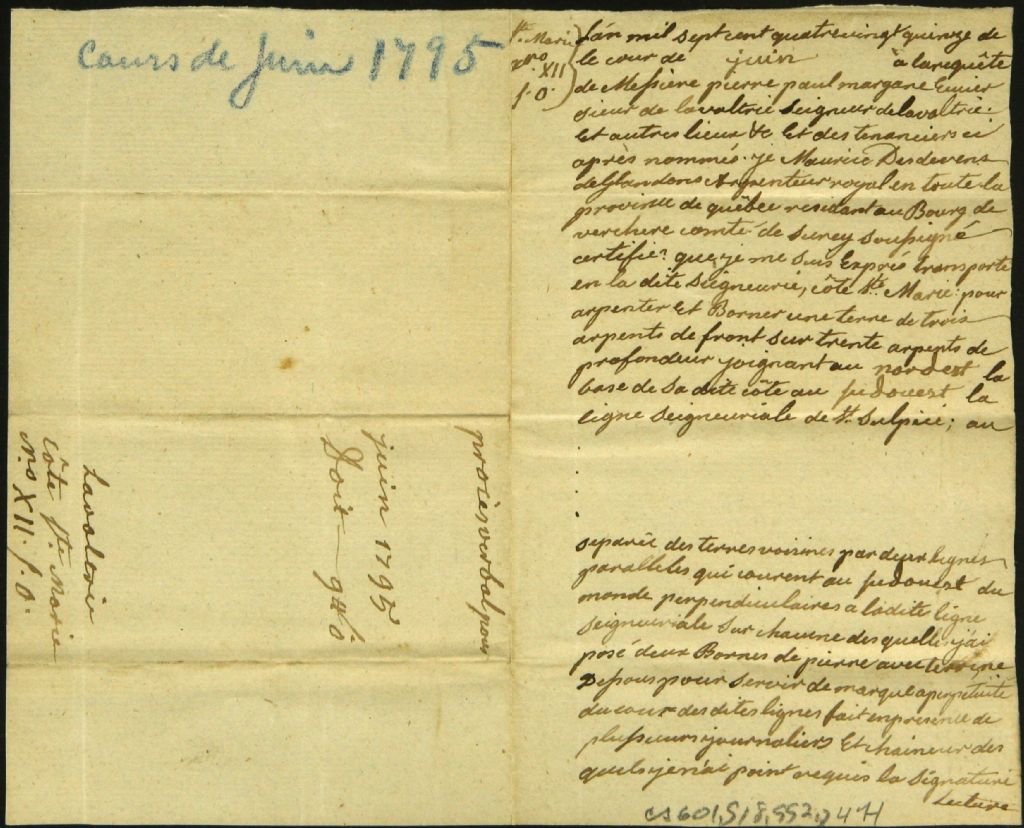 Cours de Juin 1795
Ste. Marie
No XII
S. O.
L'an mil sept cent quatrevingt quinze de
le cour de juin à la requête
de Messire pierre paul margane Ecuier
sieur de lavaltrie Seigneur de lavaltrie
Et autres lieux &c Et des tenanciers ci
après nommés. je Maurice Desdevens
de Glandons Arpenteur royal en toute la
province de quêbec residant au Bourg de
verchere comté de Surey soussigné
certifie que je me suis Exprès transporté
en la dite Seigneurie, côte Ste. Marie pour
arpenter Et Borner une terre de trois
arpents de front sur trente arpents de
profondeur joignant au nord est la
base de sa dite côte au sudouest la
ligne seigneuriale de St. Sulpice; au
separée des terres voisines par deux lignes
paralleles qui courent au sudouest du
monde perpendiculaires a ladite ligne
seigneuriale sur chacune des quelles j'ai
posé deux Bornes de pierre avec terrine
Dessous pour servir de marque a perpetuité
du cour des dites lignes fait en presence de
plusieurs journaliers Et chaineur des
quels je n'ai point requis la signature
Lecture
procès verbal pour
juin 1795
Doit
Lavaltrie
Côte Ste. Marie
No XII. S. O.